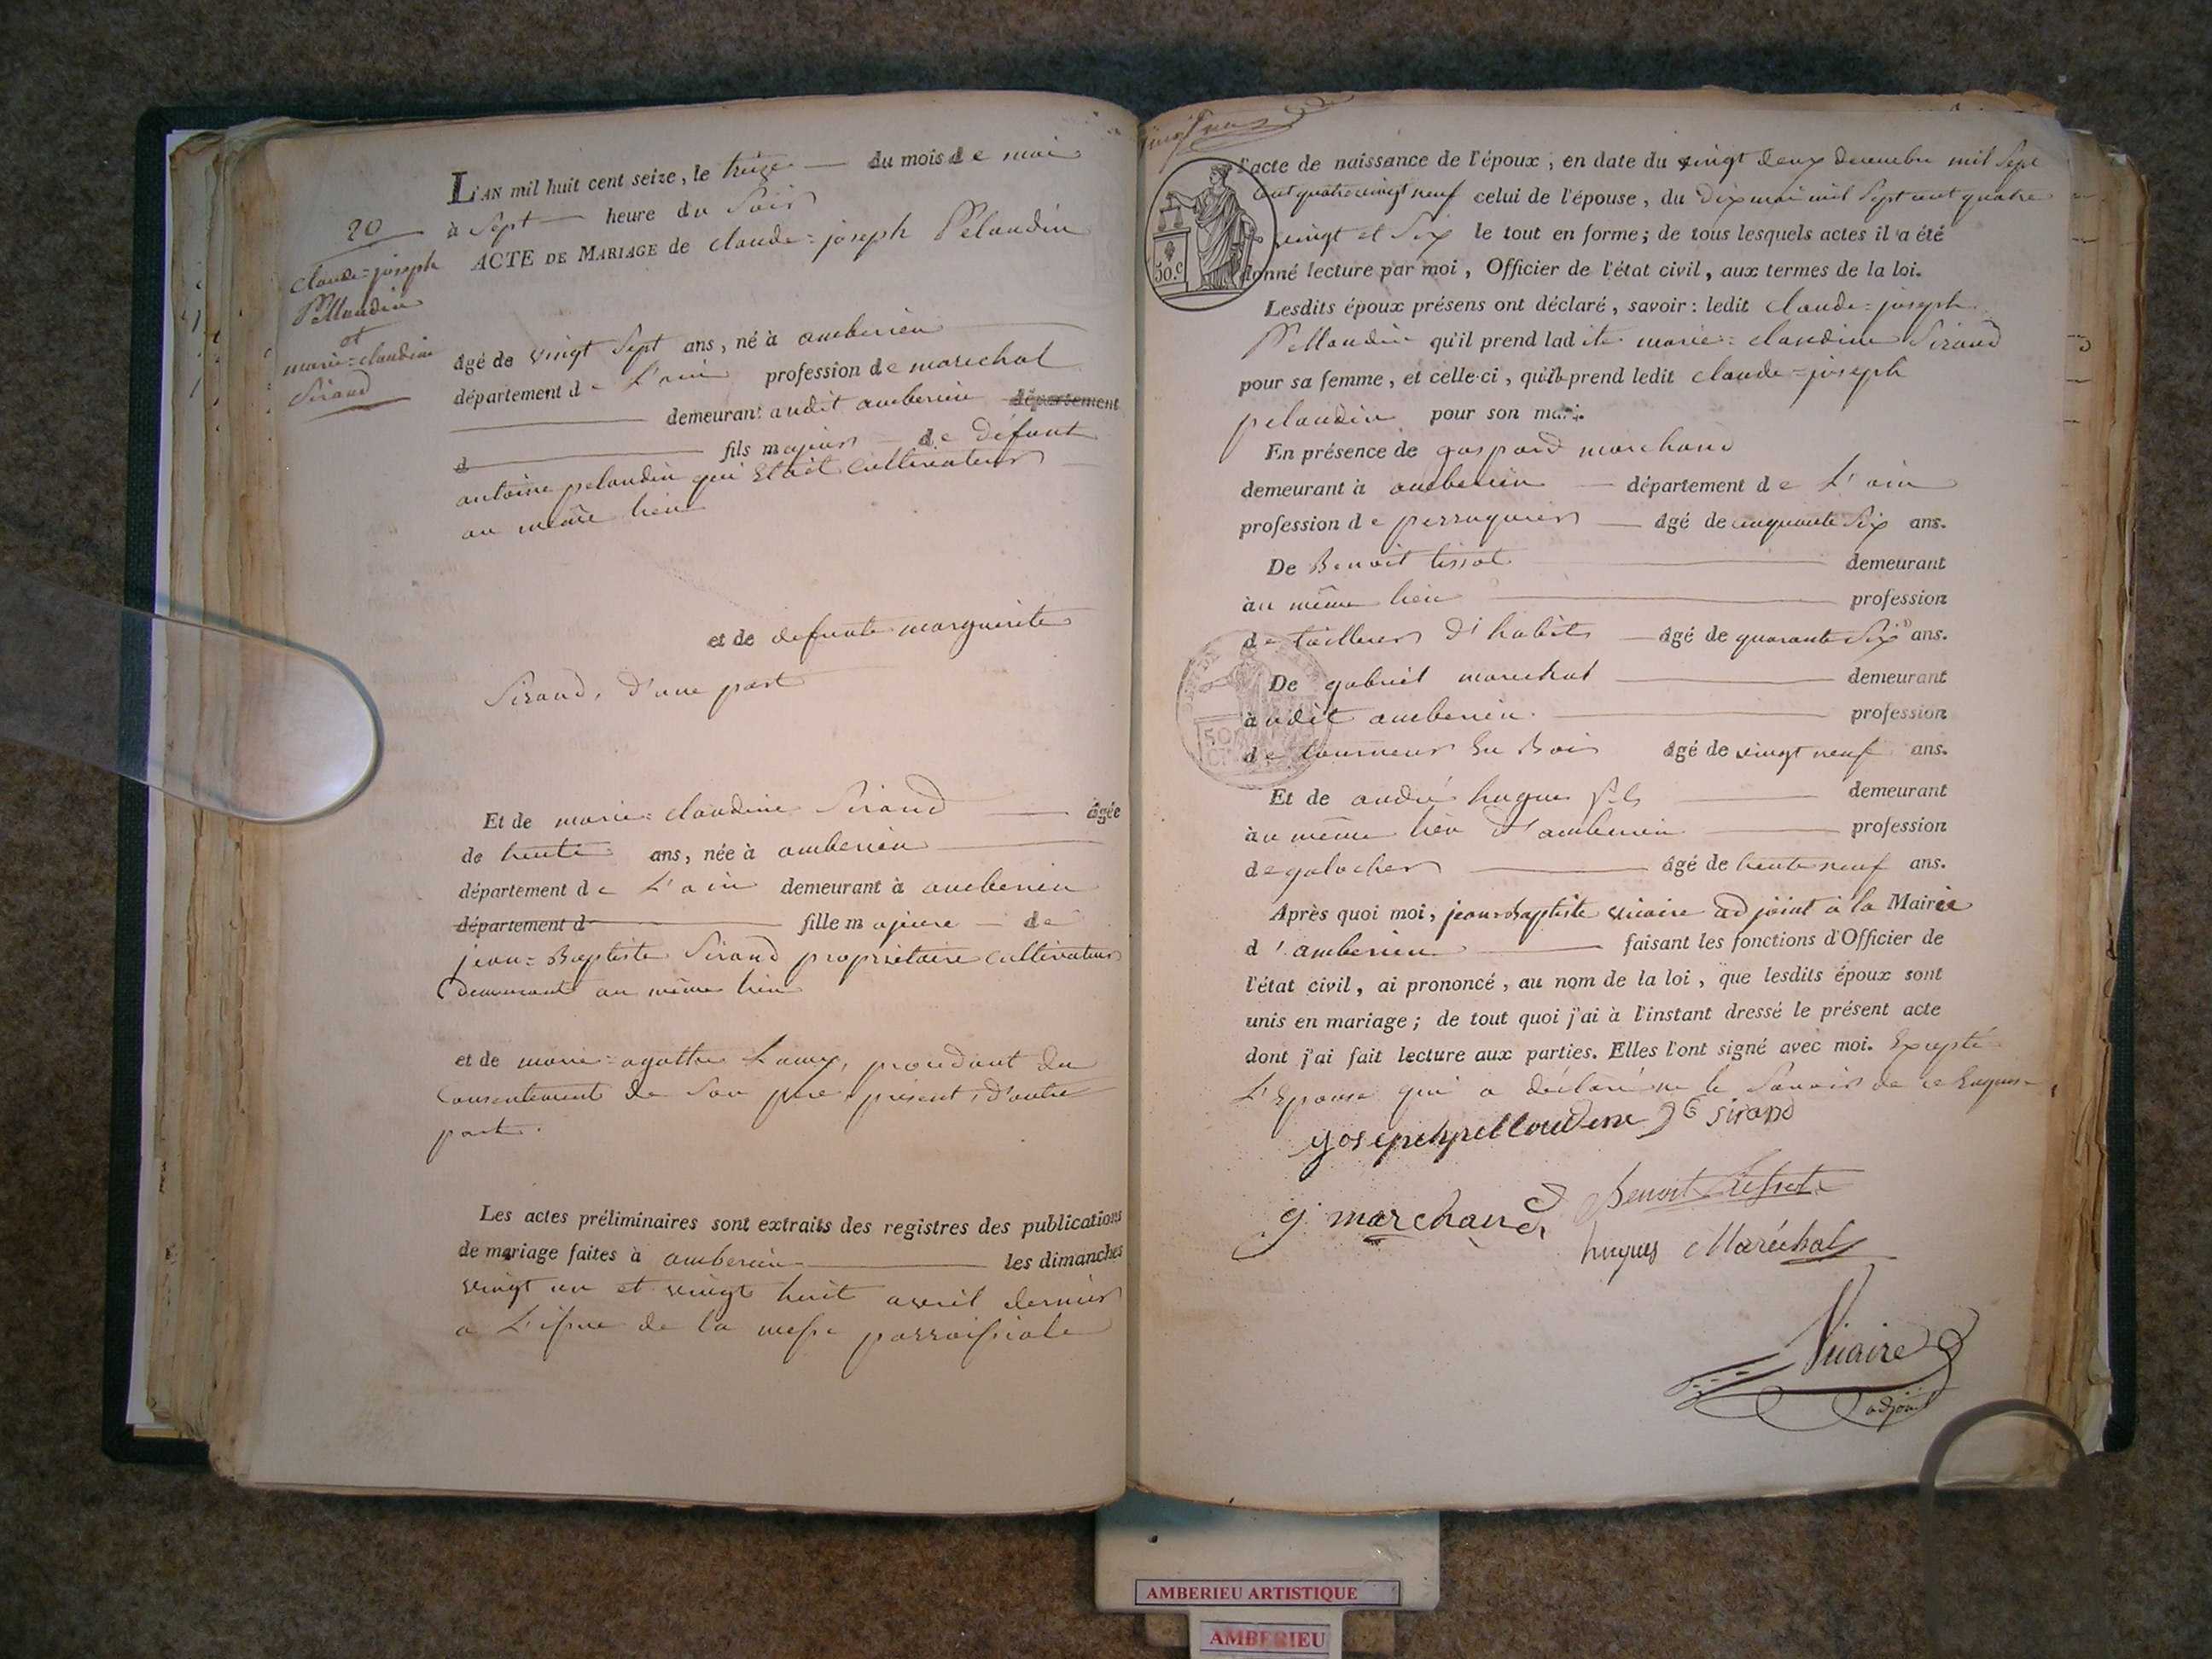 20
claude=joseph
Pellaudin
et
marie=claudine
Sirand
L'AN mil huit cent seize, le treize du mois de mai
à Sept heure du Soir
ACTE DE MARIAGE de claude=joseph Pelaudin
âgé de vingt Sept ans, né à amberieu
département de L'ain profession de marechal
demeurant audit amberieu département
d fils majeur de défunt
antoine pelaudin qui Etait Cultivateur
au même lieu
et de defunte marguerite
Sirand, d'une part
Et de marie=claudine Sirand âgée
de trente ans, née à amberieu
département de L'ain demeurant à amberieu
département d fille majeure de
jean=Baptiste Sirand propriétaire cultivateur
demeurant au même lieu
et de marie=agathe Lamy, procedant du
Consentement de Son pere présent, d'autre
part.
Les actes préliminaires sont extraits des registres des publications
de mariage faites à amberieu les dimanches
vingt un et vingt huit avril dernier
a L'issue de la messe parroissiale
l'acte de naissance de l'époux, en date du vingt deux decembre mil Sept
cent quatre vingt neuf celui de l'épouse, du dix mai mil Sept cent quatre
vingt et Six le tout en forme; de tous lesquels actes il a été
donné lecture par moi, Officier de l'état civil, aux termes de la loi.
50.c
Lesdits époux présens ont déclaré, savoir: ledit claude=joseph
Pellaudin qu'il prend ladite marie=claudine Sirand
pour sa femme, et celle-ci, qu'il prend ledit claude=joseph
pelaudin pour son mari.
En présence de gaspard marchand
demeurant à amberieu département de L'ain
profession de perruquier âgé de cinquante Six ans.
De Benoit tissot demeurant
àu même lieu profession
de tailleur d'habits âgé de quarante Six ans.
De gabriel marechal demeurant
àudit amberieu profession
de tourneur En Bois âgé de vingt neuf ans.
50
Et de andré hugues fils demeurant
àu même lieu d'amberieu profession
de galocher âgé de trente neuf ans.
Après quoi moi, jean=baptiste vicaire adjoint à la Mairie
d'amberieu faisant les fonctions d'Officier de
l'état civil, ai prononcé, au nom de la loi, que lesdits époux sont
unis en mariage; de tout quoi j'ai à l'instant dressé le présent acte
dont j'ai fait lecture aux parties. Elles l'ont signé avec moi. Excepté
L'Epouse qui a déclaré ne le Savoir de ce Enquise
sirand
g marchand Benoit Tissot
hugues Maréchal
Vicaire
adjoint
AMBERIEU ARTISTIQUE
AMBERIEU